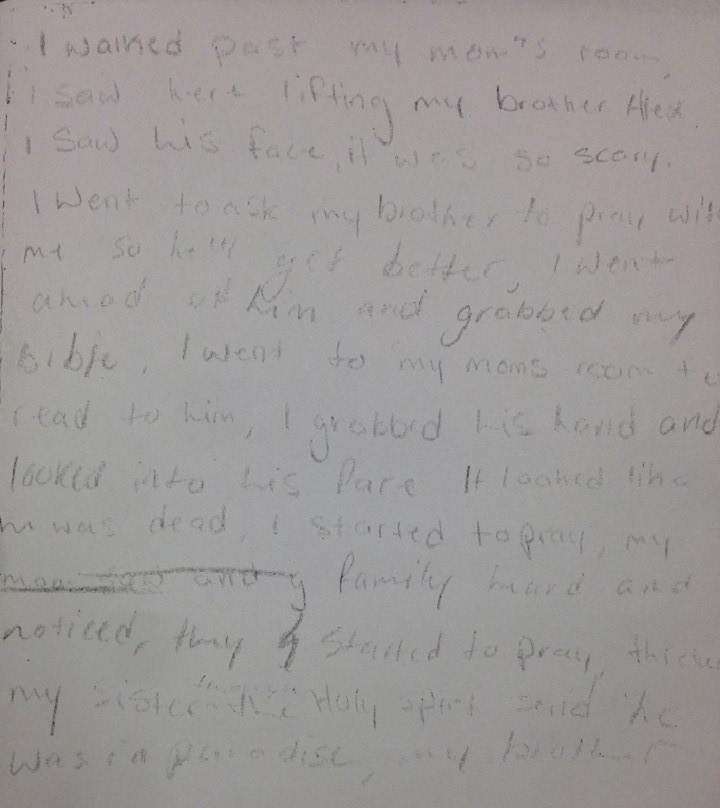 I walked past my mom"s room,
i saw here lifting my brother Alex.
I saw his face, it was so scary.
I went to ask my brother to pray with
me so he'll get better, I went
ahead of him and grabbed my
Bible, I went to my moms room to
read to him, I grabbed his hand and
looked into his face It looked like
he was dead, I started to pray, my
mom saw and y family heard and
noticed, they started to pray,
my sister "the Holy spirit said he
was in paradise, my brother